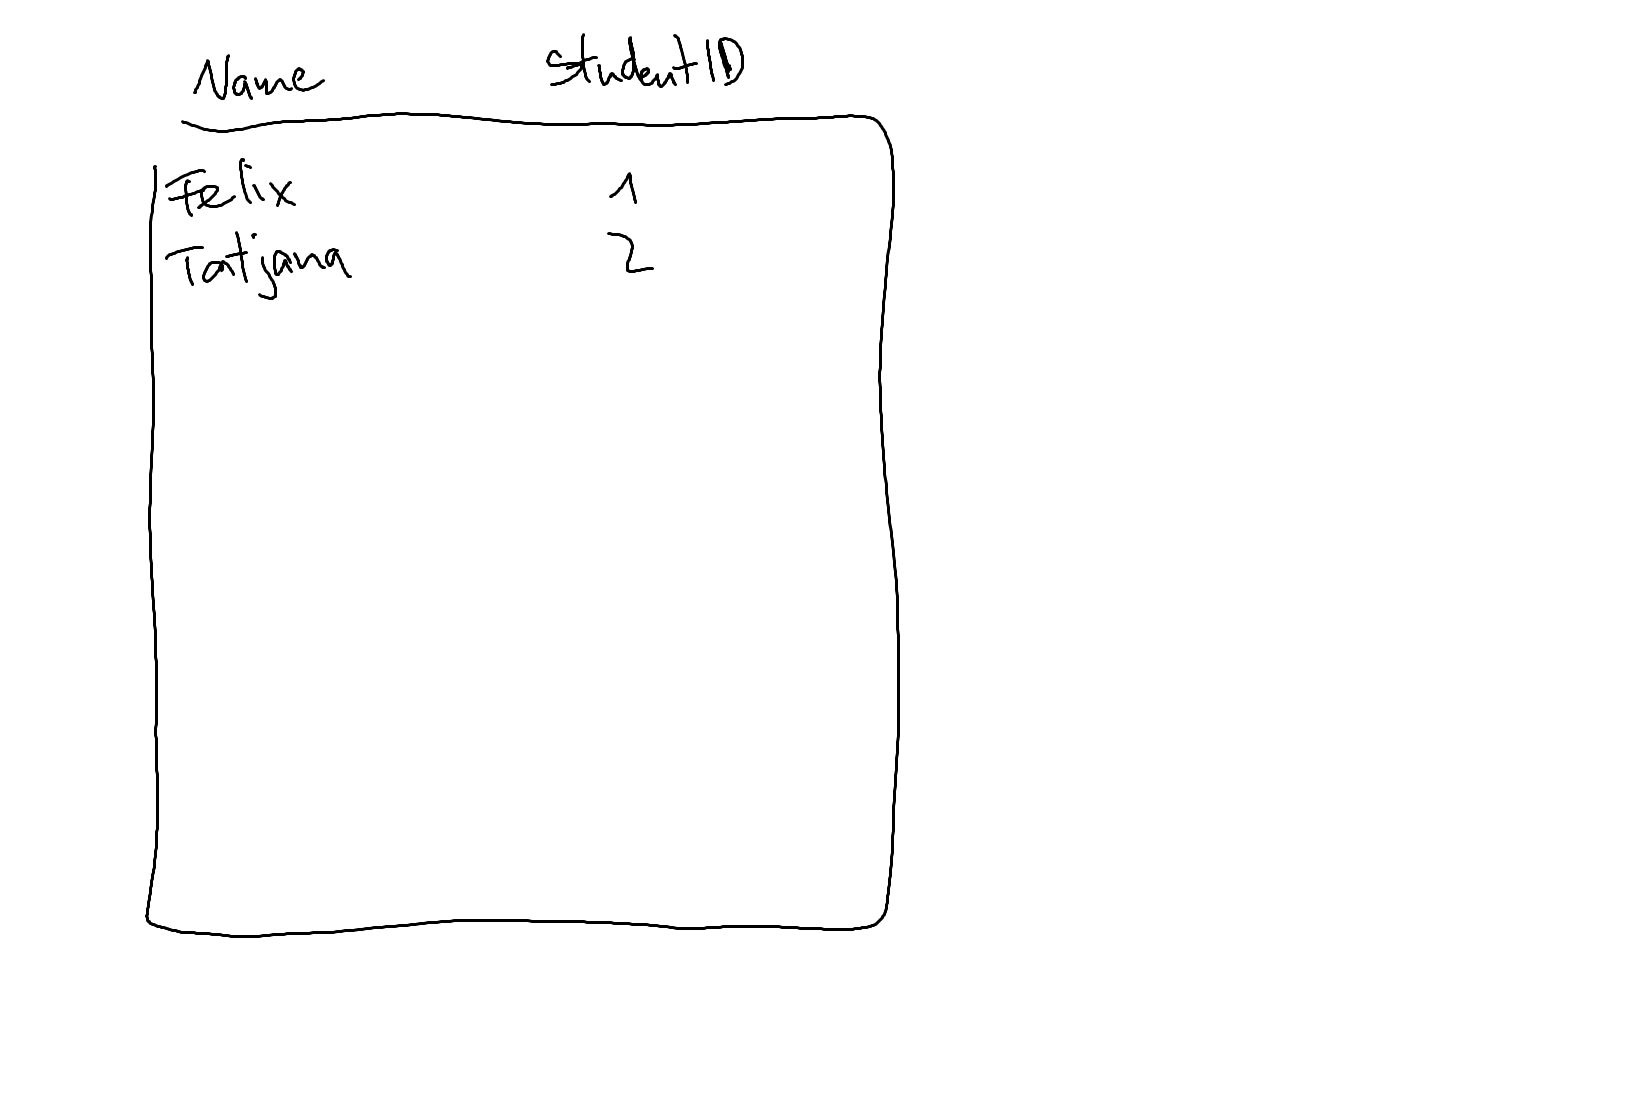 Name StudentID
Felix 1
Tatjana 2